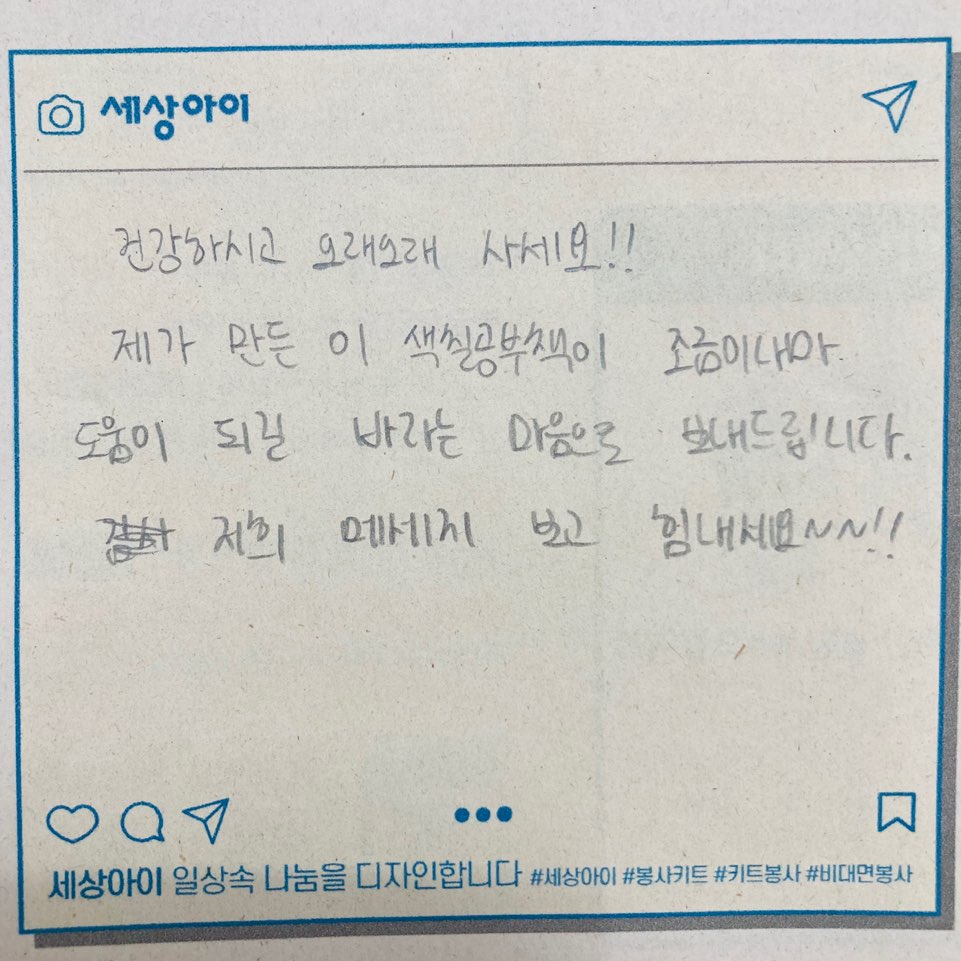 세상아이
건강하시고 오래오래 사세요!!
제가 만든 이 색칠공부책이 조금이나마
도움이 되길 바라는 마음으로 보내드립니다.
저희 메세지 보고 힘내세요~~!!
세상아이 일상속 나눔을 디자인합니다 #세상아이 #봉사키트 #키트봉사 #비대면봉사